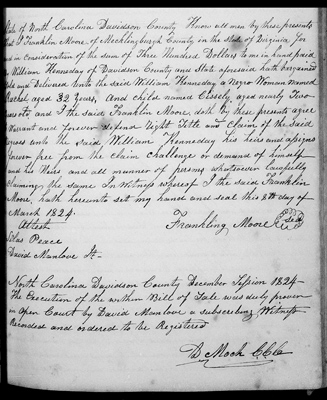 State of North Carolina Davidson County Know all men by these presents
that I Franklin Moore, of Mecklingburgh County in the state of Virginia, for
and in Consideration of the sum of Three Hundred Dollars to me in hand paid
by William Kenneday of Davidson County and State aforesaid hath bargained
sold and Delivered Unto the said William Kenneday a Negro Woman Named
aged 32 Years, And child named Clessly, aged nearly Two
Years and I the said Franklin Moore, doth by these presents agree
Warrant and forever defend right title and Claim of the Said
Negroes unto the said William Kenneday his heirs and assigns
forever free from the Claim challenge or demand of himself
and his Heirs and all manner of persons whatsoever Lawfully
Claiming the same In Witness whereof I the said Franklin
Moore, hath hereunto set my hand and seal this 8th day of
March 1824.
Attest Frankling Moore Seal
Silas Peace
David Manlove Jr
North Carolina Davidson County December Session 1824
The Execution of the within Bill of Sale was duly proven
in Open Court by David Manlove a subscribing Witness
Recorded and ordered to be Registered
D Mock C.Clk